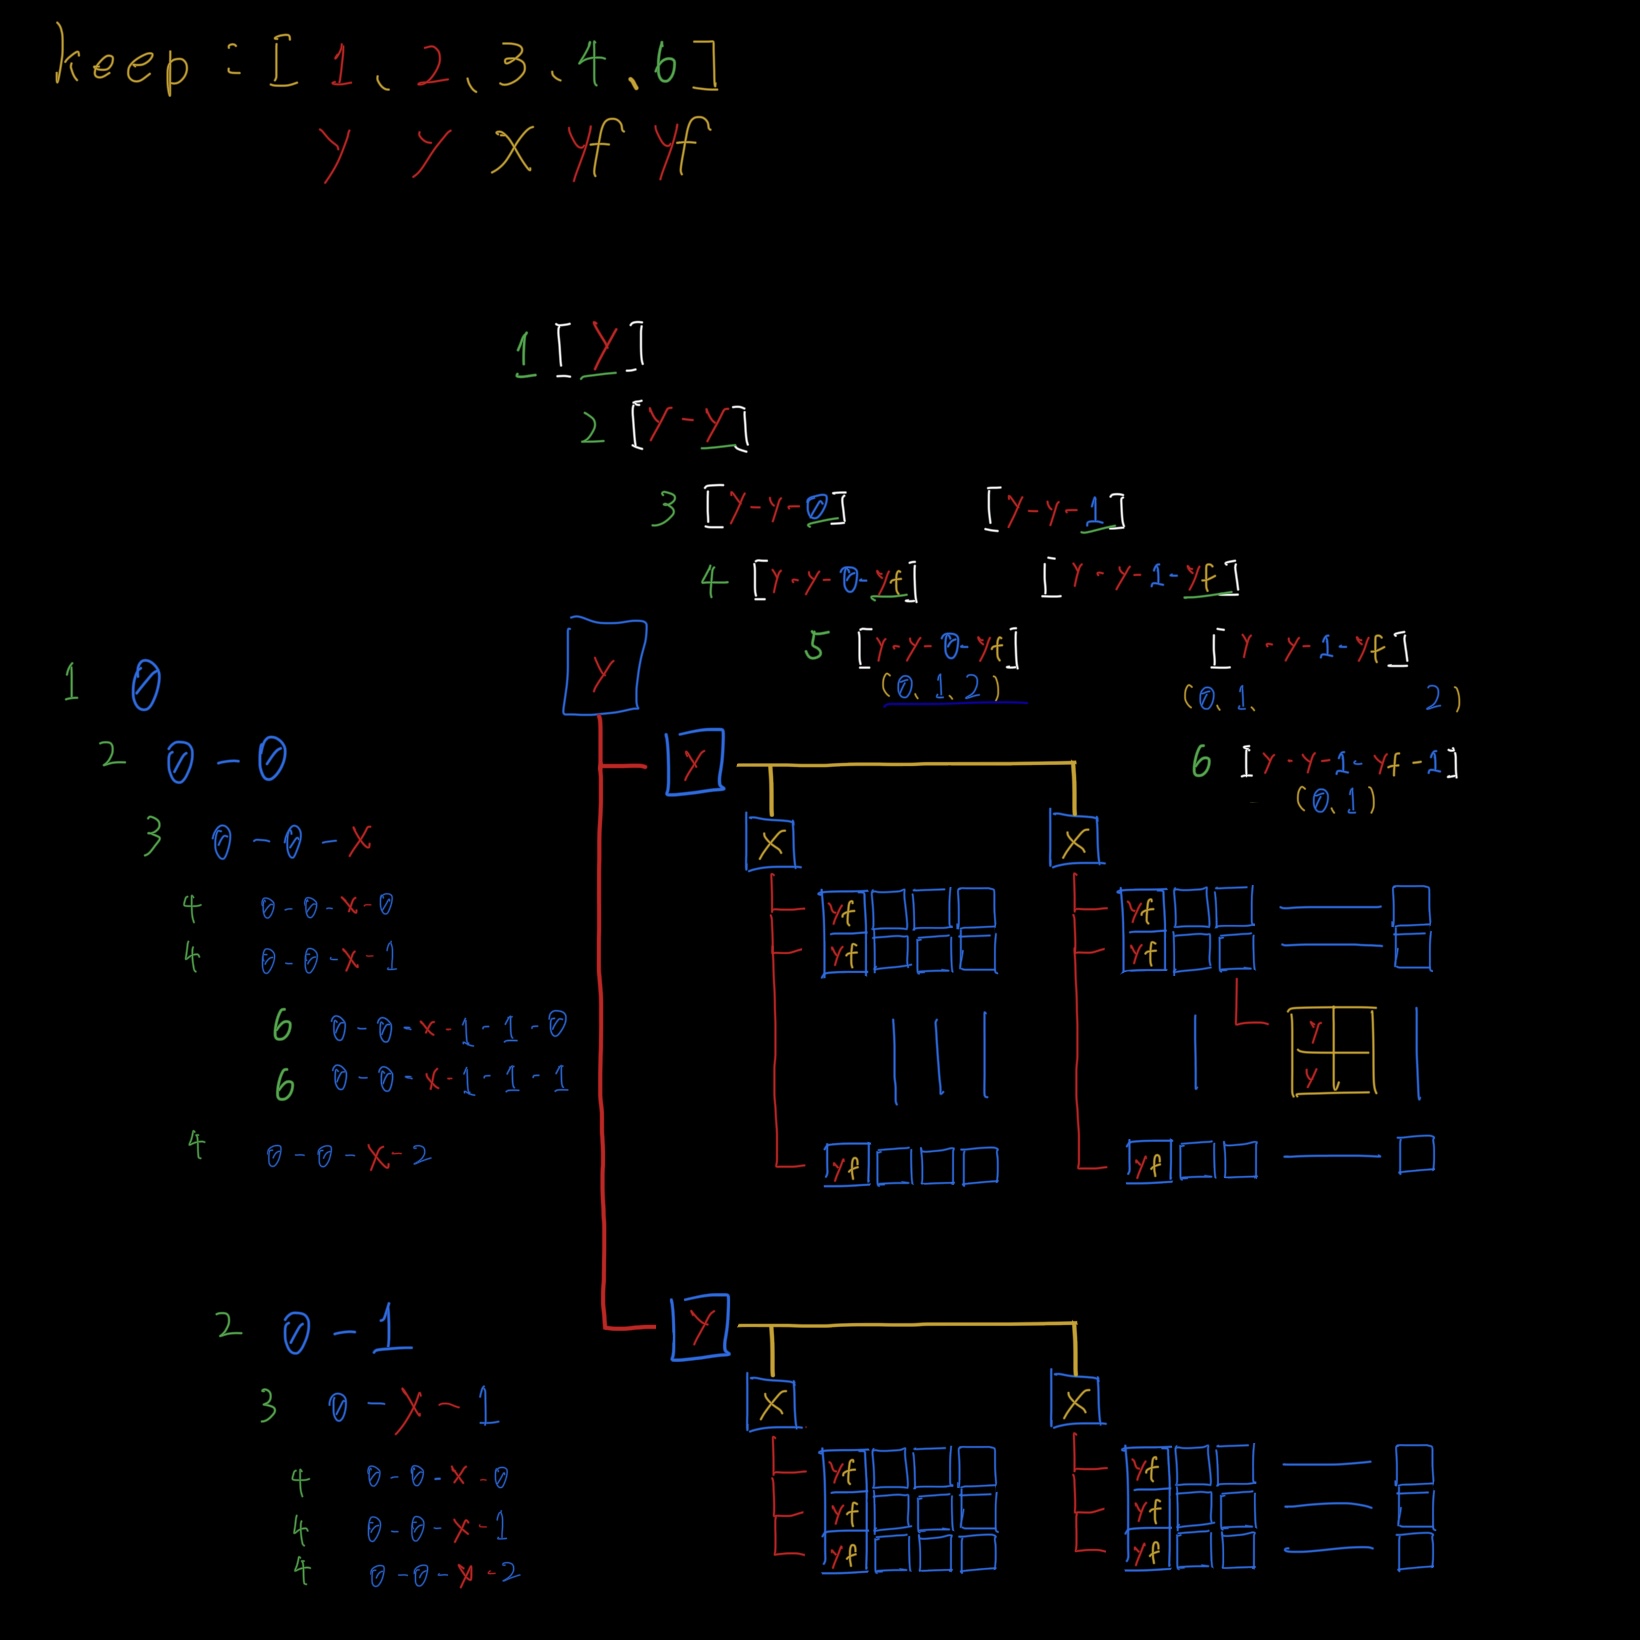 keep : [ 1、2、3、4、6 ]
y y x yf yf
1 [ y ]
2 [ y - y ]
3 [ y - y - 0 ] [ y - y - 1 ]
4 [ y - y - 0 - yf ] [ y - y - 1 - yf ]
5 [ y - y - 0 - yf ] [ y - y - 1 - yf ]
(0、1、2) (0、1、 2)
6 [ y - y - 1 - yf - 1 ]
(0、1)
1 0
2 0 - 0
3 0 - 0 - x
4 0 - 0 - x - 0
4 0 - 0 - x - 1
6 0 - 0 - x - 1 - 1 - 0
6 0 - 0 - x - 1 - 1 - 1
4 0 - 0 - x - 2
2 0 - 1
3 0 - x - 1
4 0 - 0 - x - 0
4 0 - 0 - x - 1
4 0 - 0 - x - 2
y
y
x x
yf yf
yf yf
y
y
yf yf
y
x x
yf yf
yf yf
yf yf